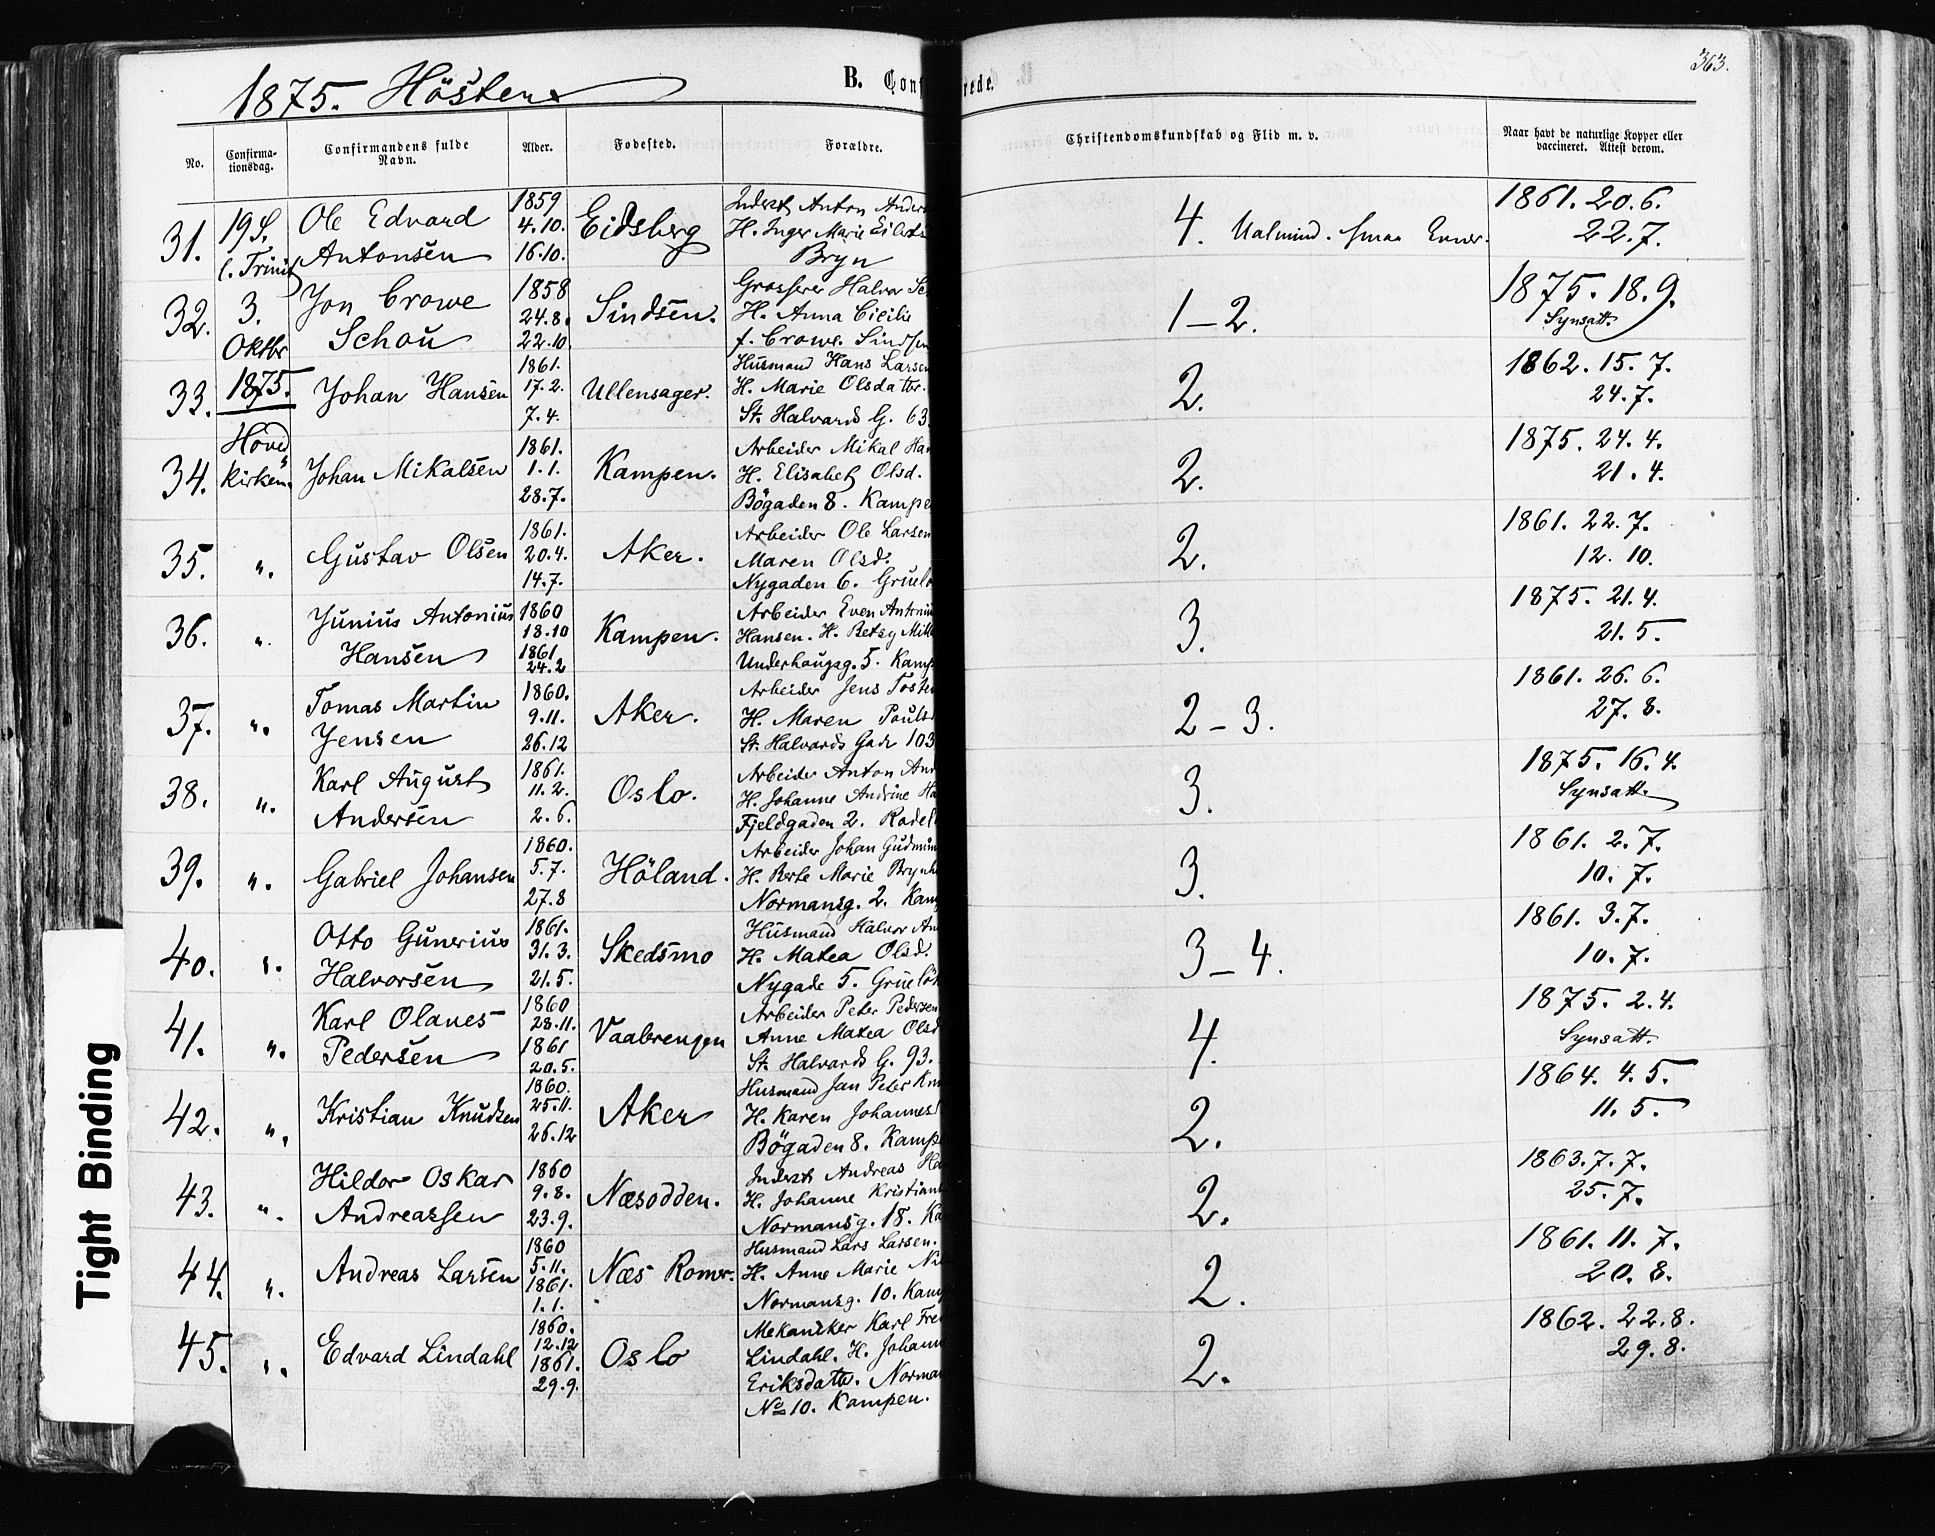 1875. Hösten
B. Conf
rede.
363.
No.
Confirma-
tionsdag.
Confirmandens fulde
Navn.
Alder.
Fødested.
Forældre.
Christendomskundskab og Flid m. v.
Naar havt de naturlige Kopper eller
vaccineret. Attest derom.
31.
19 S.
e. Trinit
Ole Edvard
Antonsen
1859
4.10.
16.10.
Eidsberg
Inderst Anton Anders
H. Inger Marie Eilerts
Bryn
4.
1861. 20.6.
22.7.
32.
3.
Oktbr
Jon Crowe
Schou
1858
24.8.
22.10.
Sindsen.
Grosserer Halvor Sc
H. Anna Cicilie
f. Crowe. Sindsen
1-2.
1875. 18.9.
Synsatt.
33.
1875.
Johan Hansen
1861.
17.2.
7.4.
Ullensager.
Husmand Hans Larsen
H. Marie Olsdatter.
St. Halvards G. 63
2.
1862. 15.7.
24.7.
34.
Hoved
kirken.
Johan Mikalsen
1861.
1.1.
28.7.
Kampen.
Arbeider Mikal Han
H. Elisabet Olsd.
Bögaden 8. Kampe
2.
1875. 24.4.
21.4.
35.
".
Gustav Olsen
1861.
20.4.
14.7.
Aker.
Arbeider Ole Larsen
Maren Olsd.
Nygaden 6. Gruelö
2.
1861. 22.7.
12.10.
36.
".
Junius Antonius
Hansen
1860
18.10
1861
24.2
Kampen.
Arbeider Even Antoniu
Hansen. H. Betzy Mikk
Underhaugsg. 5. Kamp
3.
1875. 21.4.
21.5.
37.
".
Tomas Martin
Jensen
1860.
9.11.
26.12
Aker.
Arbeider Jens Tosten
H. Maren Pouls
St. Halvards Gade 103
2-3.
1861. 26.6.
27.8.
38.
".
Karl August
Andersen
1861.
11.2.
2.6.
Oslo.
Arbeider Anton And
H. Johanne Andrine Ha
Fjeldgaden 2. Rodel
3.
1875. 16.4.
Synsatt.
39.
".
Gabriel Johansen
1860.
5.7.
27.8
Höland.
Arbeider Johan Gudmun
H. Berte Marie Brynh
Normansg. 2. Kam
3.
1861. 2.7.
10.7.
40.
".
Otto Gunerius
Halvorsen
1861.
31.3.
21.5.
Skedsmo
Husmand Halvor An
H. Matea Olsd.
Nygade 5. Gruelök
3-4.
1861. 3.7.
10.7.
41.
".
Karl Olaves
Pedersen
1860
28.11.
1861
20.5.
Vaalerengen
Arbeider Peter Pedersen
Anne Matea Olsd
St. Halvards G. 93.
4.
1875. 2.4.
Synsatt.
42.
".
Kristian Knudsen
1860.
25.11.
26.12
Aker
Husmand Jan Peter Knu
H. Karen Johannesd
Bögaden 8. Kamp
2.
1864. 4.5.
11.5.
43.
".
Hildor Oskar
Andreassen
1860
9.8.
23.9.
Næsodden.
Inderst Andreas Ha
H. Johanne Kristian
Normansg. 18. Ka
2.
1863. 7.7.
25.7.
44.
".
Andreas Larsen
1860
5.11.
1861.
1.1.
Næs Romer.
Husmand Lars Larsen.
H. Anne Marie Ni
Normansg. 10. Kamp
2.
1861. 11.7.
20.8.
45.
".
Edvard Lindahl
1860.
12.12
1861.
29.9.
Oslo
Mekaniker Karl Fre
Lindahl. H. Johann
Eriksdatter. Norman
No 10. Kampen.
2.
1862. 22.8.
29.8.
Tight Binding